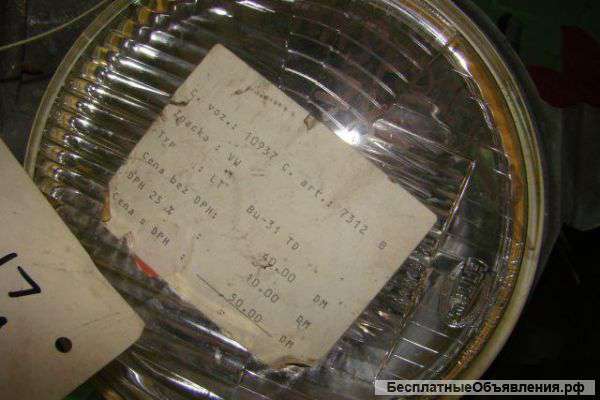 C. voz.: 10937 C. art.: 7312 B
Znacka : VW
TYP : LT Bu-31 TD
Cena bez DPH: 40.00 DM
DPH 25 % : 10.00 DM
Cena s DPH : 50.00 DM
БесплатныеОбъявления.рф